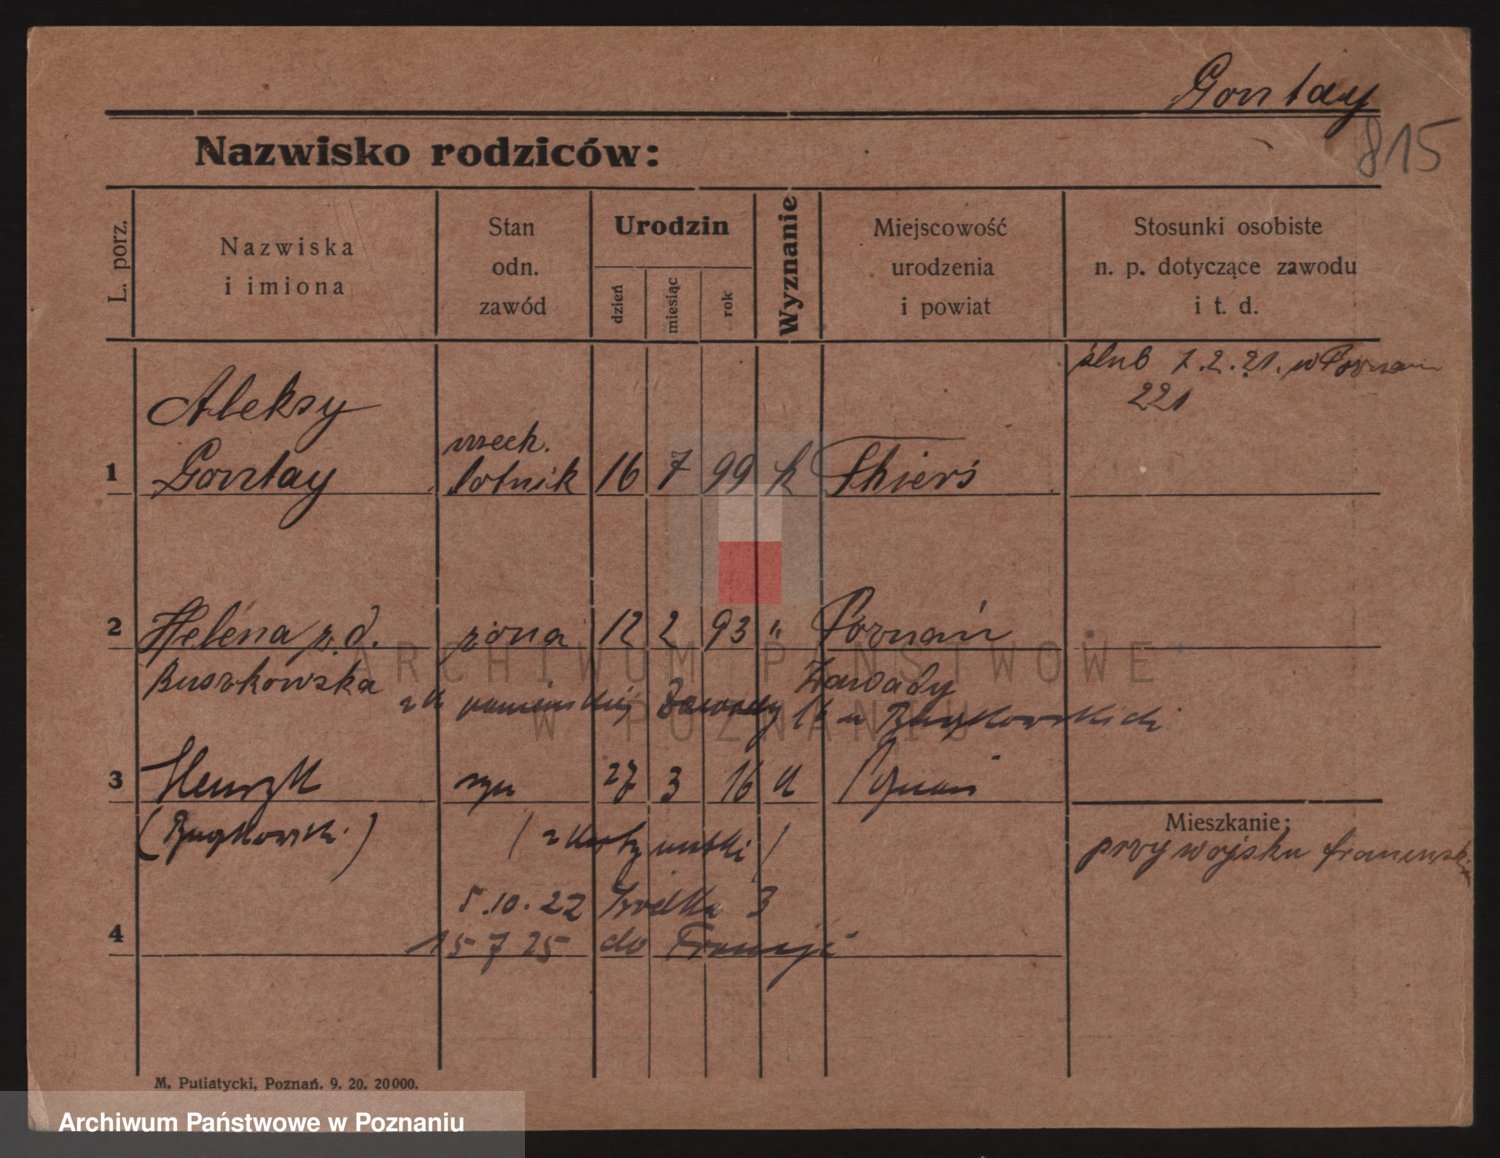 Gontay
815
Nazwisko rodziców:
L. porz.
Nazwiska i imiona
Stan odn. zawód
Urodzin
dzień
miesiąc
rok
Wyznanie
Miejscowość urodzenia i powiat
Stosunki osobiste n. p. dotyczące zawodu i t. d.
ślub 1.2.21. w Poznaniu
221
Aleksy
1 Gontay mech. lotnik 16 7 99 k Thiers
2 Helena z. d. żona 12 2 93 " Poznań
Buszkowska
Zawady
Zawady 16 u
3 Henryk syn 27 3 16 k Poznań
Mieszkanie:
przy wojsku francuski
( z karty matki )
5.10.22 Środka 3
4 15 7 25 do Francji
M. Putiatycki, Poznań. 9. 20. 20000.
ARCHIWUM PAŃSTWOWE
W POZNANIU
Archiwum Państwowe w Poznaniu